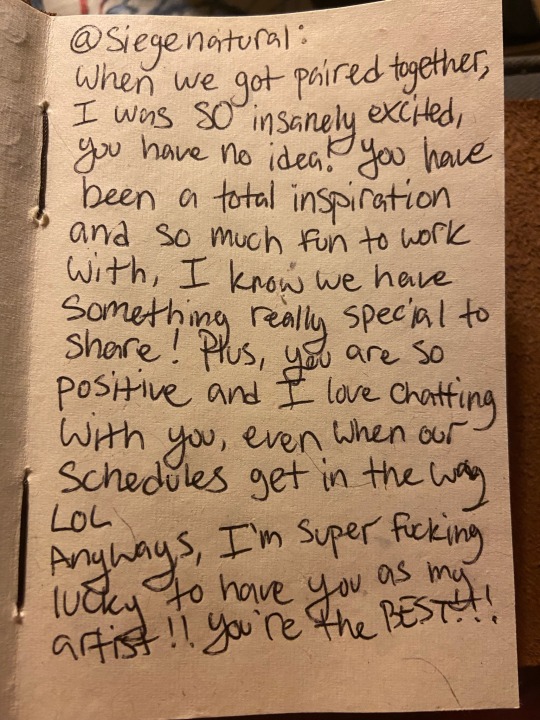 @siegenatural:
When we got paired together,
I was SO insanely excited,
you have no idea! You have
been a total inspiration
and so much fun to work
with, I know we have
something really special to
share! Plus, you are so
positive and I love chatting
with you, even when our
schedules get in the way
LOL
Anyways, I'm super fucking
lucky to have you as my
artist!! You're the BEST!!!